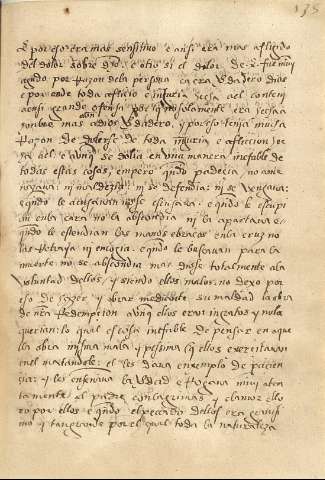 & por eso era mas sensitiuo e ansi era mas afligido
del dolor sobre dho. e otro si el dolor de fue muy
agudo por Razon dela persona ca era Vdadero dios
e por ende toda aflictio e iniuria fecha a el contem
a cosi grande ofensa por q no solamente era fecha a
ombre mas a dios Vdadero, y por eso tenia mucha
Razon de dolerse de toda iniuria e afliccion fe
cha a el. e aunq se dolia en una manera inefable de
todas estas cosas, empero qndo padecia, no ame
nazaua: ni maldezia: ni se defendia: ni se Vengaua:
e qndo le acusauan no se escusaua. e qndo le escupi
an enla cara no la abscondia ni la apartaua. e
qndo le estendian las manos e braços enla cruz no
las Retraya ni encogia. e qndo le buscauan para la
muerte no se abscondia mas diose totalmente a la
voluntad dellos, y siendo ellos malos, no dexo por
eso de hazer y obrar mediante su maldad la obra
de nra Redempcion aunq ellos eran ingratos y no la
querian: lo qual es cosa inefable de pensar en aque
lla obra misma mala y pessima q ellos exercitauan
en el matandole: el les daua enxemplo de pacien
cia: y les enseñaua la Vdad e Rogaua muy aten
tamente al padre con lagrimas y clamor e llo
ro por ellos e qndo el peccado dellos era grauissi
mo y tan grande por el qual toda la naturaleza